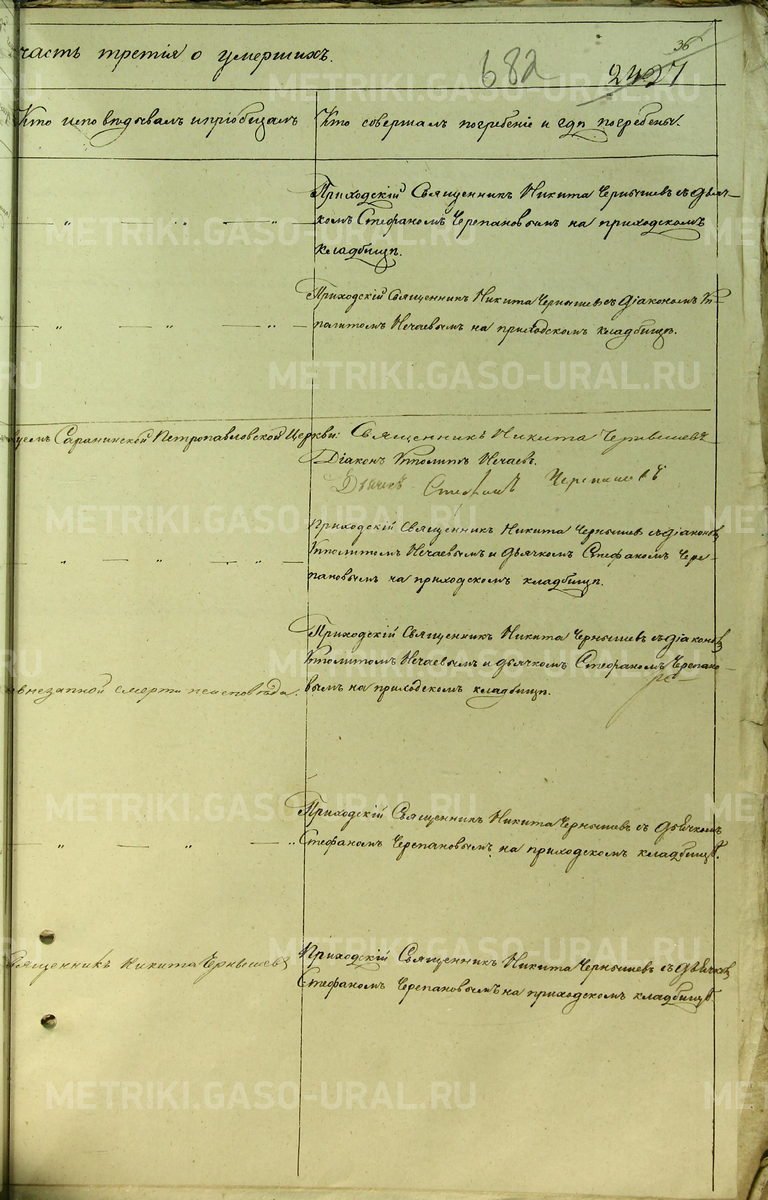 часть третія о умершихъ.
682
36
2427
Кто исповѣдывалъ и пріобщалъ
Кто совершалъ погребеніе и гдѣ погребены.
Приходскій Священникъ Никита Чернышев съ дьяч-
комъ Стефаномъ Черепановымъ на приходскомъ
кладбищѣ.
Приходскій Священникъ Никита Чернышевъ съ діакономъ Ип-
политомъ Нечаевымъ на приходскомъ кладбищѣ.
Саранинской Петропавловской Церкви: Священникъ Никита Чернышевъ
Діаконъ Ипполитъ Нечаевъ.
Дьячекъ Стефанъ Черепановъ
Приходскій Священникъ Никита Чернышев съ діакономъ
Ипполитомъ Нечаевымъ и дьячкомъ Стефаномъ Чере-
пановымъ на приходскомъ кладбищѣ.
Приходскій Священникъ Никита Чернышев съ діакономъ
Ипполитомъ Нечаевымъ и дьячкомъ Стефаномъ Черепано-
внезапной смерти неисповѣдан. вымъ на приходскомъ кладбищѣ.
Приходскій Священникъ Никита Чернышевъ съ дьячкомъ
Стефаномъ Черепановымъ на приходскомъ кладбищѣ.
Священникъ Никита Чернышевъ
Приходскій Священникъ Никита Чернышевъ съ дьячком
Стефаномъ Черепановымъ на приходскомъ кладбищѣ
METRIKI.GASO-URAL.RU